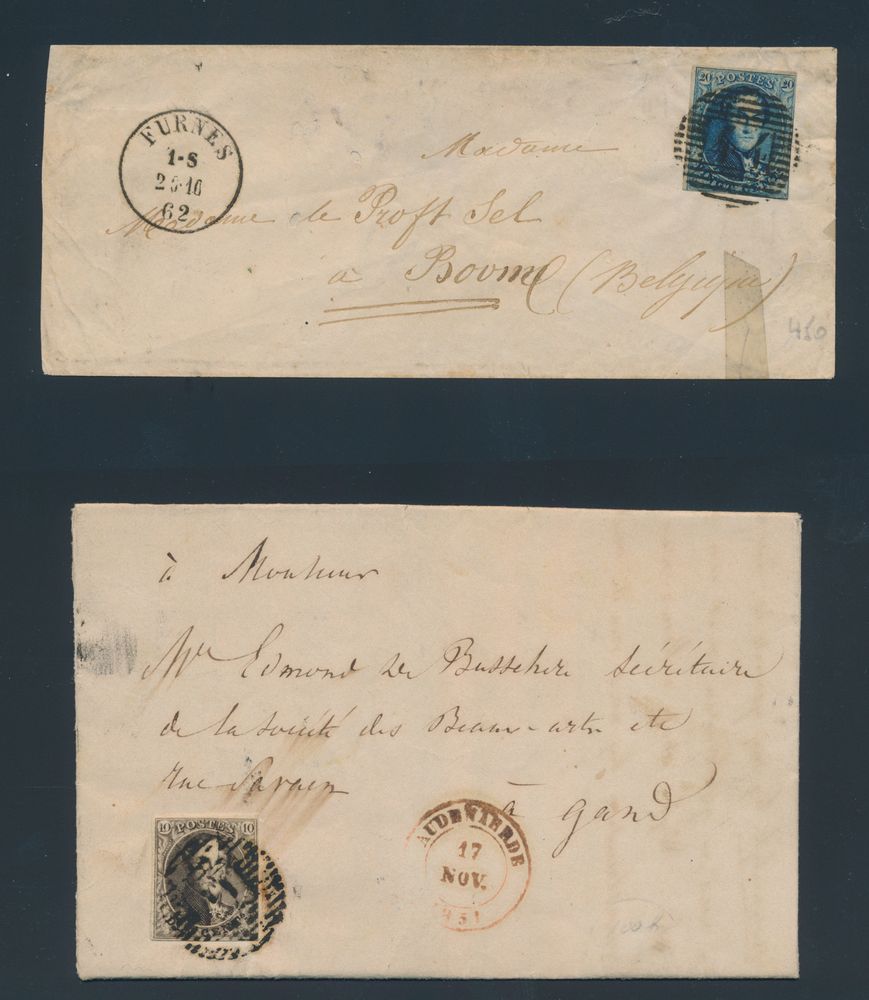 FURNES
1-S
25·10
62
20 POSTES 20
Madame
Madame de Proft Sel
à Boom (Belgique)
450
à Monsieur
Mr Edmond De Busscher Sécrétaire
de la Société des Beaux-arts etc
rue Savaen
à Gand
10 POSTES 10
AUDENAERDE
17
NOV.
1851